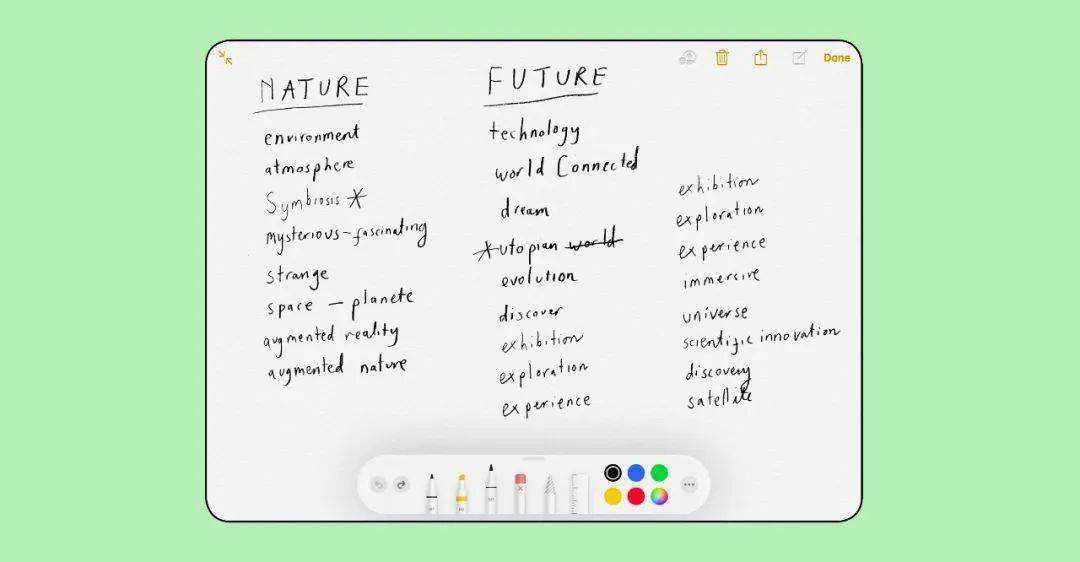 Done
NATURE
environment
atmosphere
Symbiosis *
mysterious-fascinating
strange
space - planete
augmented reality
augmented nature
FUTURE
technology
world Connected
dream
*utopian world
evolution
discover
exhibition
exploration
experience
exhibition
exploration
experience
immersive
universe
scientific innovation
discovery
satellite